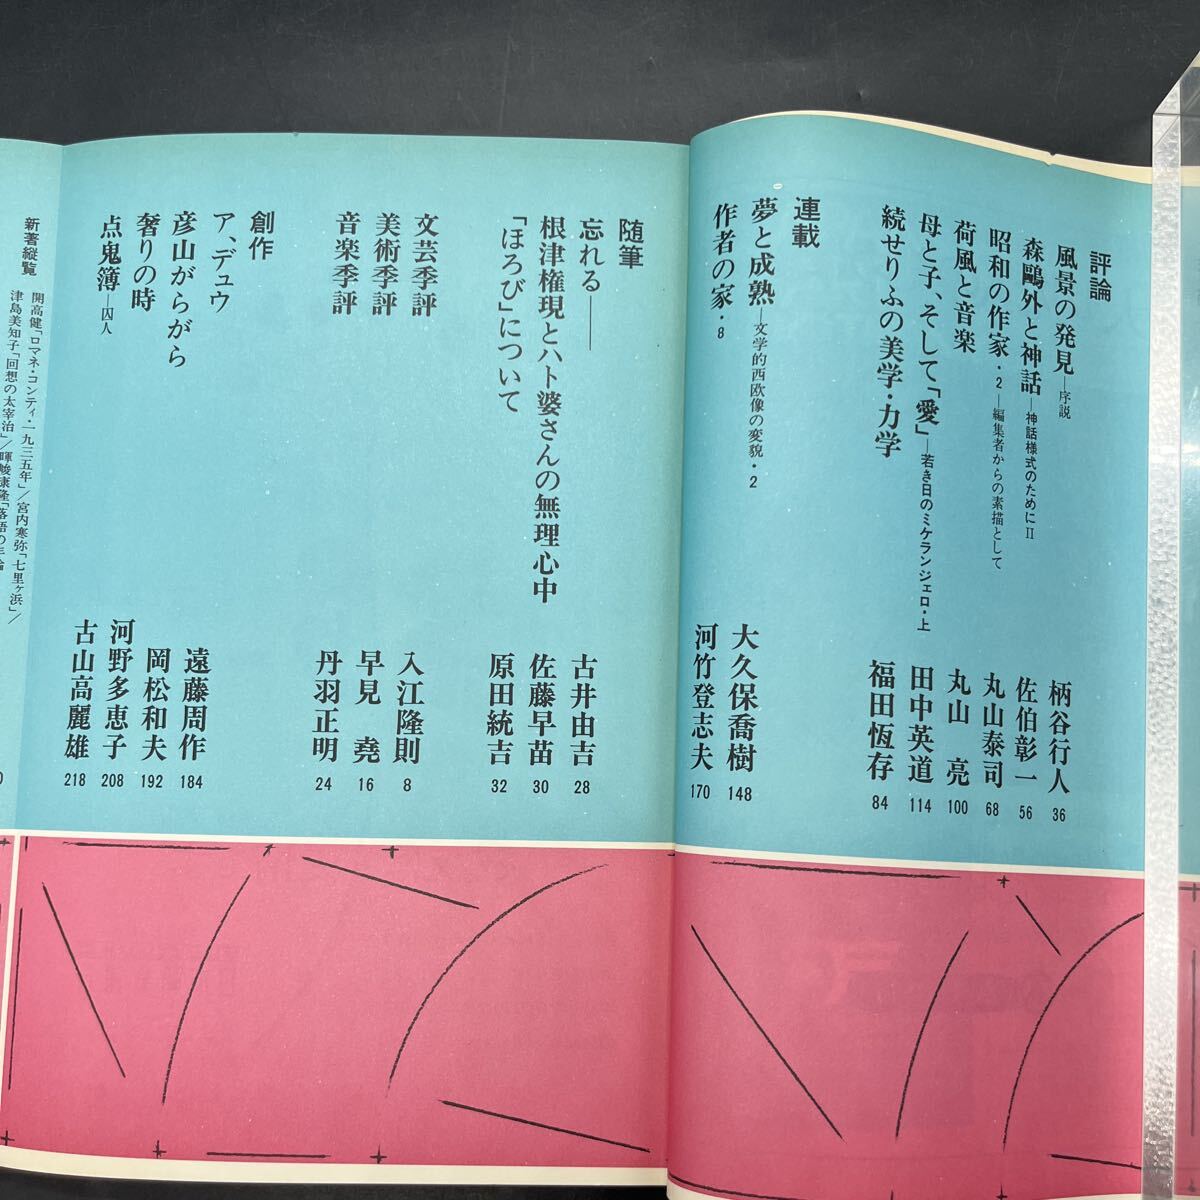 評論
風景の発見―序説 柄谷行人 36
森鷗外と神話―神話様式のためにⅡ 佐伯彰一 56
昭和の作家・2―編集者からの素描として 丸山泰司 68
荷風と音楽 丸山 亮 100
母と子、そして「愛」―若き日のミケランジェロ・上 田中英道 114
続せりふの美学・力学 福田恆存 84
連載
夢と成熟―文学的西欧像の変貌・2 大久保喬樹 148
作者の家・8 河竹登志夫 170
随筆
忘れる―― 古井由吉 28
根津権現とハト婆さんの無理心中 佐藤早苗 30
「ほろび」について 原田統吉 32
文芸季評 入江隆則 8
美術季評 早見 堯 16
音楽季評 丹羽正明 24
創作
ア、デュウ 遠藤周作 184
彦山がらがら 岡松和夫 192
奢りの時 河野多恵子 208
点鬼簿―囚人 古山高麗雄 218
新著縦覧
開高健「ロマネ・コンティ・一九三五年」／宮内寒弥「七里ヶ浜」／
津島美知子「回想の太宰治」／暉峻康隆「落語の